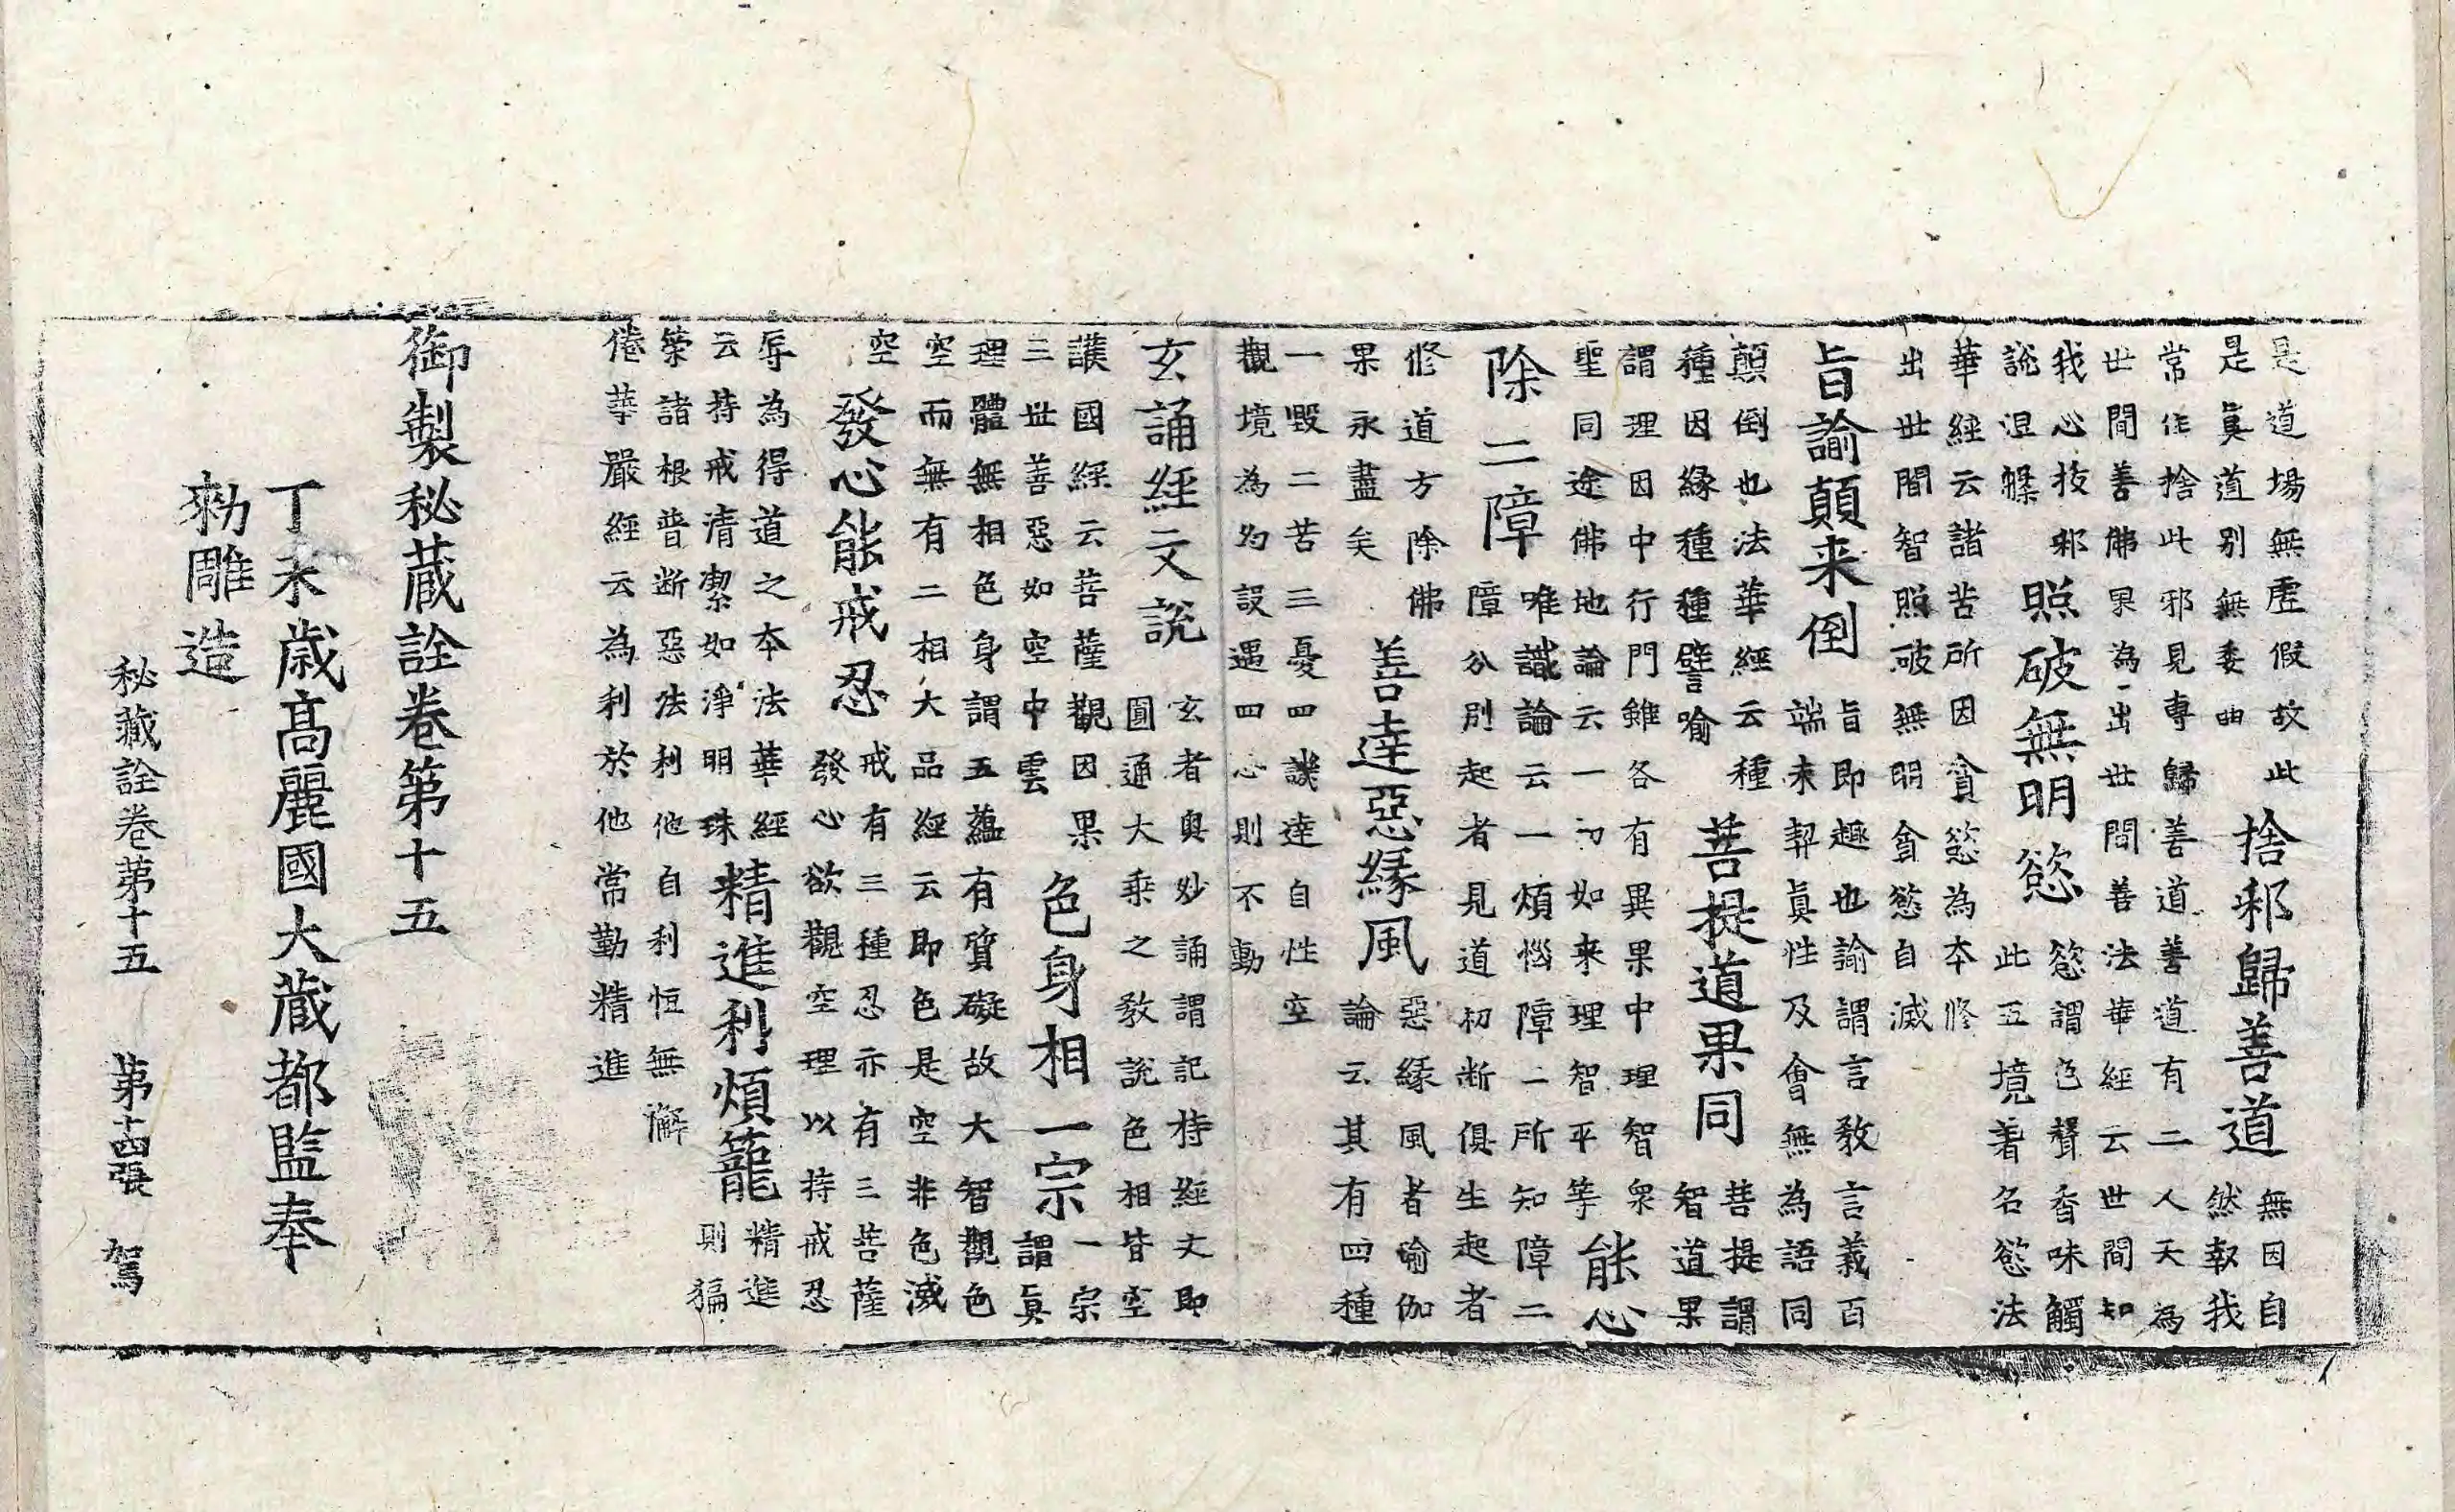 是道場無虛假故此
是眞道別無委曲
捨邪歸善道
無因自
然執我
常作捨此邪見專歸善道善道有二人天為
世間善佛果為出世間善法華經云世間知
我心拔邪
說涅槃
照破無明慾
慾謂色聲香味觸
此五境著名慾法
華經云諸苦所因貪慾為本修
出世間智照破無明貪慾自滅
旨諭顛来倒
旨即趣也諭謂言教言義百
端来契眞性及會無為語同
顛倒也法華經云種
種因緣種種譬喻
菩提道果同
菩提謂
智道果
謂理因中行門雖各有異果中理智衆
聖同途佛地論云一切如来理智平等
能心
除二障
唯識論云一煩惱障二所知障二
障分別起者見道初断俱生起者
修道方除佛
果永盡矣
善達惡緣風
惡緣風者喻伽
論云其有四種
一毀二苦三憂四譏達自性空
觀境為幻設遇四心則不動
玄誦經文說
玄者奥妙誦謂記持經文即
圓通大乘之教說色相皆空
護國經云菩薩觀因果
三世善惡如空中雲
色身相一宗
一宗
謂眞
理體無相色身謂五蘊有質礙故大智觀色
空而無有二相大品經云即色是空非色滅
空
發心能戒忍
戒有三種忍亦有三菩薩
發心欲觀空理以持戒忍
辱為得道之本法華經
云持戒清潔如淨明珠
精進利煩籠
精進
則策
築諸根普断惡法利他自利恒無懈
倦華嚴經云為利於他常勤精進
御製秘蔵詮卷第十五
丁未歲高麗國大蔵都監奉
勑雕造
秘藏詮卷第十五 第十四張 駕